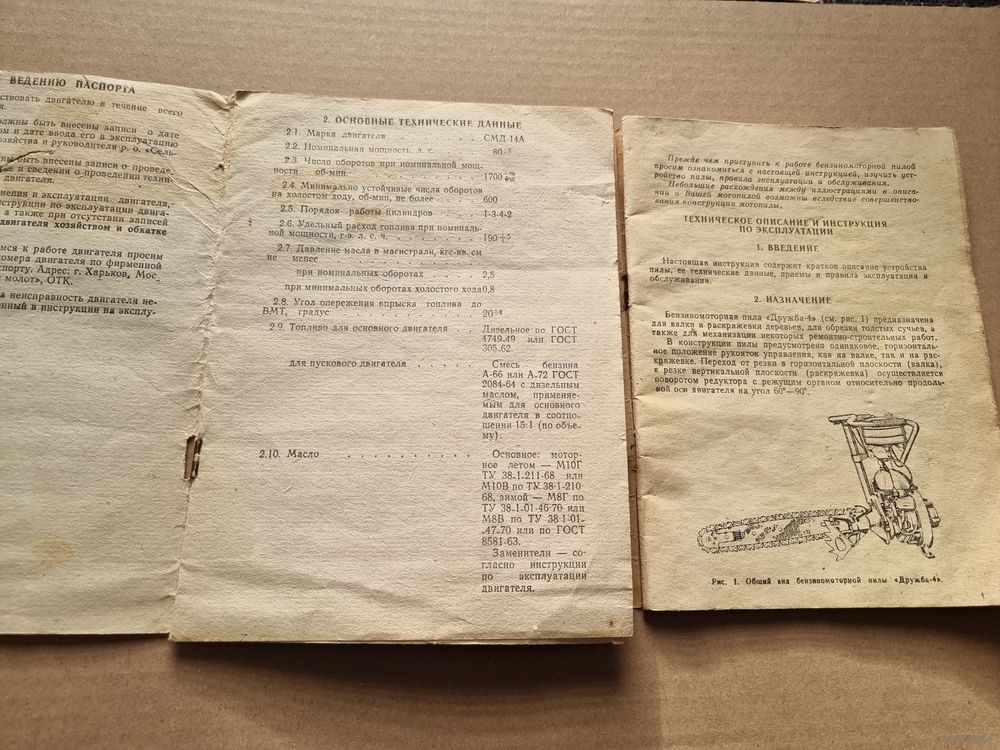 ВЕДЕНИЮ ПАСПОРТА
ствовать двигателю в течение всего
я.
олжны быть внесены записи о дате
ом и дате ввода его в эксплуатацию
озяйства и руководителя р. о. «Сель-
ны быть внесены записи о проведе-
е и сведения о проведении техни-
двигателя.
нения в эксплуатации двигателя,
нструкции по эксплуатации двига-
а также при отсутствии записей
двигателя хозяйством и обкатке
имся к работе двигателя просим
номера двигателя по фирменной
спорту. Адрес: г. Харьков, Мос
молот», ОТК.
а неисправность двигателя не-
нный в инструкции на эксплу-
2. ОСНОВНЫЕ ТЕХНИЧЕСКИЕ ДАННЫЕ
2.1. Марка двигателя . . СМД-14А
2.2. Номинальная мощность, л. с. . . 80+5
2.3. Число оборотов при номинальной мощ-
ности об-мин. . . . . . . . . . 1700
2.4. Минимально устойчивые числа оборотов
на холостом ходу, об-мин, не более . . 600
2.5. Порядок работы цилиндров . . 1-3-4-2
2.6. Удельный расход топлива при номиналь-
ной мощности, г-э. л. с. ч. . . . . . . 190+5
2.7. Давление масла в магистрали, кгс-кв. см
не менее . . . . . . . . .
при номинальных оборотах . . . . 2,5
при минимальных оборотах холостого хода 0,8
2.8. Угол опережения впрыска топлива до
ВМТ, градус . . . . . . . . 20
2.9. Топливо для основного двигателя . . Дизельное по ГОСТ
4749-49 или ГОСТ
305-62.
для пускового двигателя . . . . . Смесь бензина
А-66 или А-72 ГОСТ
2084-64 с дизельным
маслом, применяе-
мым для основного
двигателя в соотно-
шении 15:1 (по объе-
му).
2.10. Масло . . . . . . . . . . Основное: мотор-
ное летом — М10Г
ТУ 38-1-211-68 или
М10В по ТУ 38-1-210-
68, зимой — М8Г по
ТУ 38-1-01-46-70 или
М8В по ТУ 38-1-01-
-47-70 или по ГОСТ
8581-63.
Заменители — со-
гласно инструкции
по эксплуатации
двигателя.
Прежде чем приступить к работе бензиномоторной пилой
просим ознакомиться с настоящей инструкцией, изучить уст-
ройство пилы, правила эксплуатации и обслуживания.
Небольшие расхождения между иллюстрациями в описа-
нии и Вашей мотопилой возможны вследствие совершенство-
вания конструкции мотопилы.
ТЕХНИЧЕСКОЕ ОПИСАНИЕ И ИНСТРУКЦИЯ
ПО ЭКСПЛУАТАЦИИ
1. ВВЕДЕНИЕ
Настоящая инструкция содержит краткое описание устройства
пилы, ее технические данные, приемы и правила эксплуатации и
обслуживания.
2. НАЗНАЧЕНИЕ
Бензиномоторная пила «Дружба-4» (см. рис. 1) предназначена
для валки и раскряжевки деревьев, для обрезки толстых сучьев, а
также для механизации некоторых ремонтно-строительных работ.
В конструкции пилы предусмотрено одинаковое, горизонталь-
ное положение рукояток управления, как на валке, так и на рас-
кряжевке. Переход от резки в горизонтальной плоскости (валка),
к резке вертикальной плоскости (раскряжевка) осуществляется
поворотом редуктора с режущим органом относительно продоль-
ной оси двигателя на угол 60°—90°.
Рис. 1. Общий вид бензиномоторной пилы «Дружба-4».